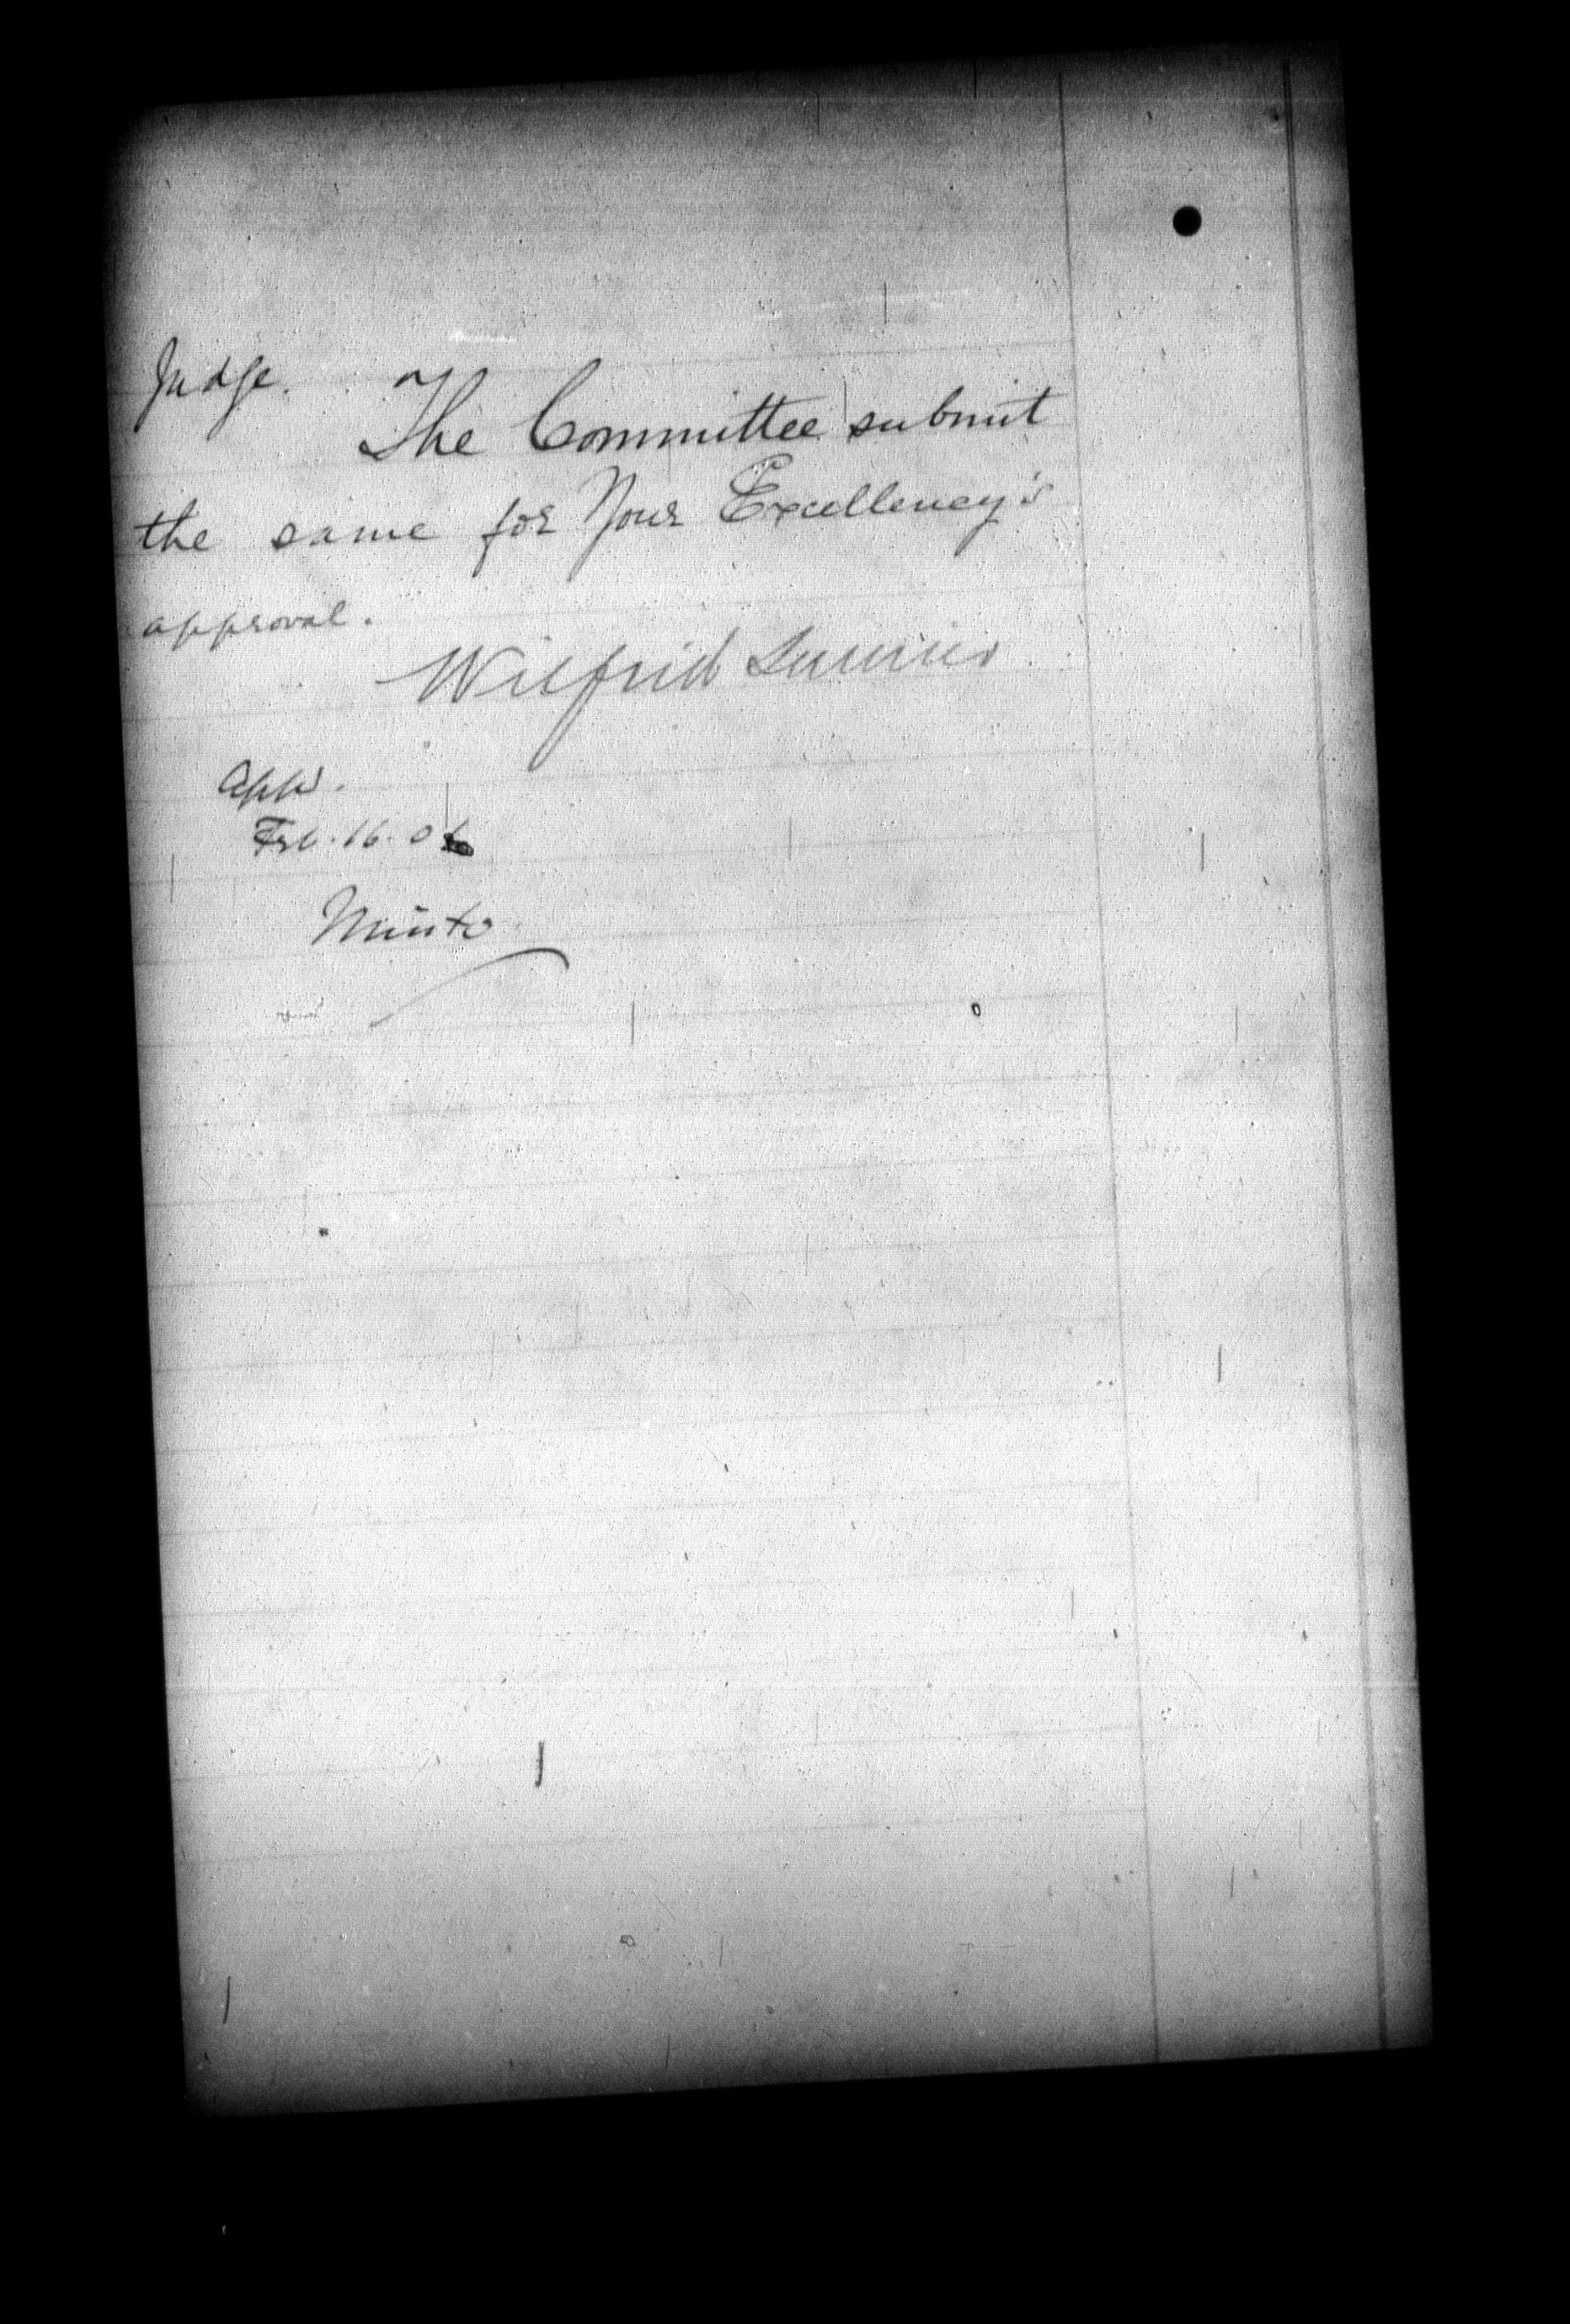 Judge.
The Committee submit
the same for Your Excellency's
approval.
Wilfrid Laurier
App'd.
Feb. 16. 0
Minto